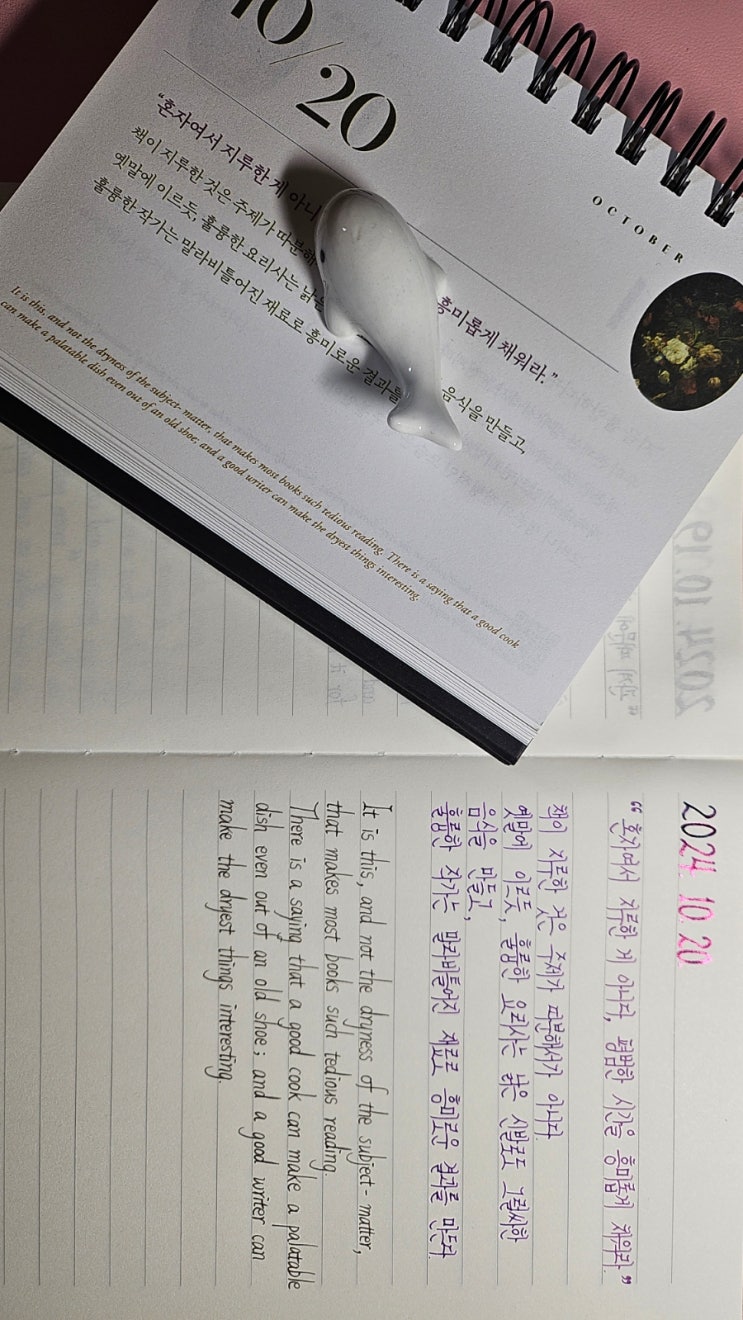 10/20
OCTOBER
“혼자여서 지루한 게 아니 흥미롭게 채워라.”
책이 지루한 것은 주제가 따분해
옛말에 이르듯, 훌륭한 요리사는 낡은 음식을 만들고,
훌륭한 작가는 말라비틀어진 재료로 흥미로운 결과를
It is this, and not the dryness of the subject-matter, that makes most books such tedious reading. There is a saying that a good cook
can make a palatable dish even out of an old shoe; and a good writer can make the dryest things interesting.
2024.10.19
2024. 10. 20
“혼자여서 지루한 게 아니다, 평범한 시간을 흥미롭게 채워라.”
책이 지루한 것은 주제가 따분해서가 아니다.
옛말에 이르듯, 훌륭한 요리사는 낡은 신발로도 그럴싸한
음식을 만들고,
훌륭한 작가는 말라비틀어진 재료로 흥미로운 결과를 만든다.
It is this, and not the dryness of the subject-matter,
that makes most books such tedious reading.
There is a saying that a good cook can make a palatable
dish even out of an old shoe; and a good writer can
make the dryest things interesting.